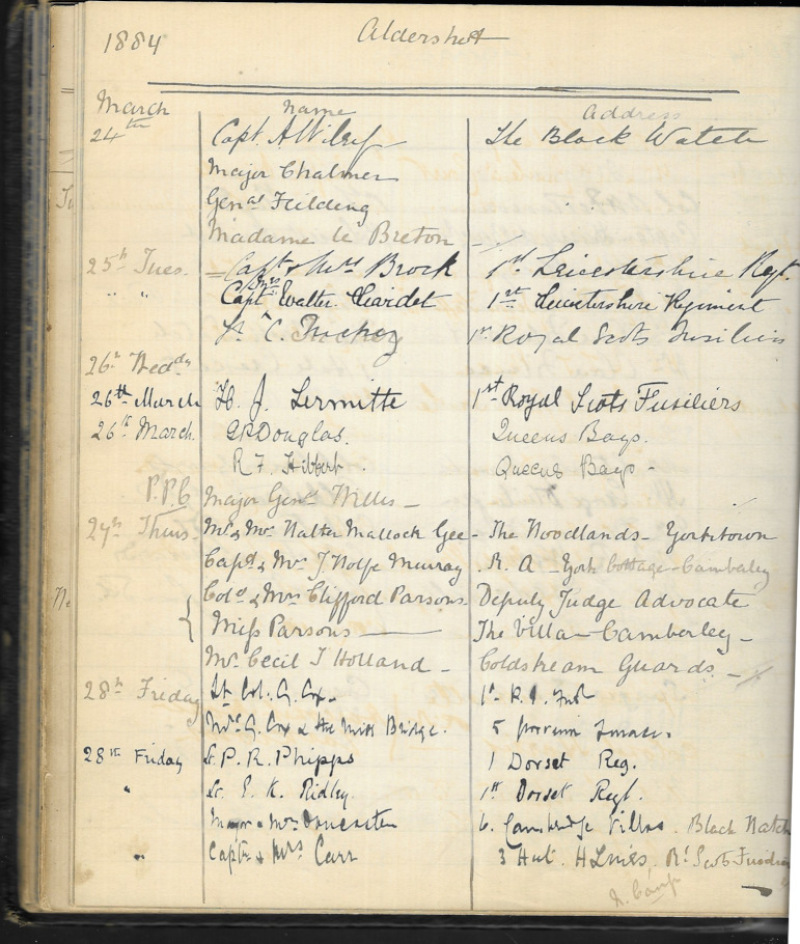 1884 Aldershott
March Name Address
24th Capt. The Black Watch
Major Chalmer
Genal Feilding
Madame le Breton
25th Tues. Capt & Mrs Brock 1st Leicestershire Regt.
" " Capt Mrs Walter 1st Leicestershire Regiment
C. 1st Royal Scots Fusiliers
26th Wedy
26th March H. J. Lermitte 1st Royal Scots Fusiliers
26th March Douglas. Queens Bays.
R. F. Hibbert. Queens Bays -
P.P.C Major Genl Willis -
27th Thurs. Mr & Mrs Walter Mallock Gee - The Woodlands - Yorktown
Capt & Mrs J Wolfe Murray R. A - York Cottage - Camberley
Colo & Mrs Clifford Parsons - Deputy Judge Advocate
Miss Parsons The Villa - Camberley -
Mr Cecil J Holland - Coldstream Guards -
28th Friday Lt Col. G. Cox.
Mrs G. Cox & the Miss Bridge. 5
28th Friday Lt. P. R. Phipps 1 Dorset Reg.
" Lt. E. K. Ridley. 1st Dorset Regt.
Major & Mrs 6. Cambridge Villas. Black Watch
" Captn & Mrs Carr 3 Hut. H Lines. Rl Scots
N. Camp